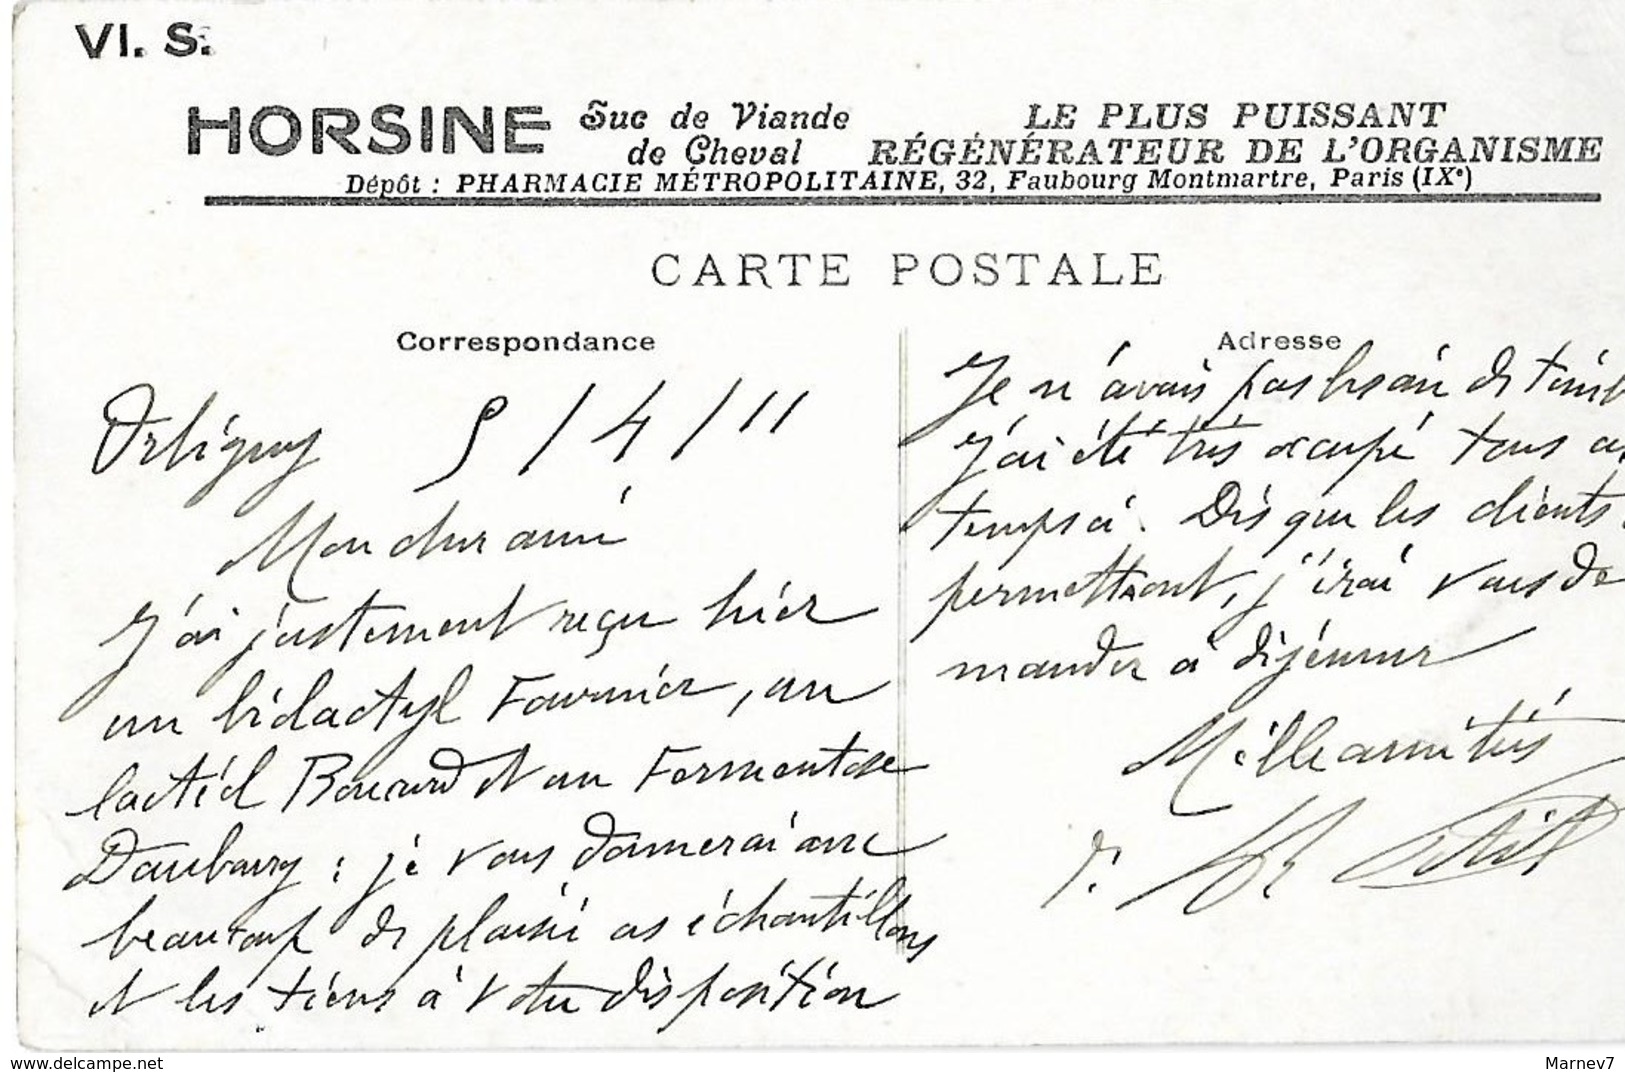 VI. S.
HORSINE Suc de Viande de Cheval
LE PLUS PUISSANT
RÉGÉNÉRATEUR DE L'ORGANISME
Dépôt : PHARMACIE MÉTROPOLITAINE, 32, Faubourg Montmartre, Paris (IXe)
CARTE POSTALE
Correspondance
5/4/11
Mon cher ami
J'ai justement reçu hier
un bidactyl Fournier, un
lactéol Boucard et un Fermentose
Daubary : je vous donnerai avec
beaucoup de plaisir ces échantillons
et les tiens à votre disposition
Adresse
Je n'avais pas besoin de timb
J'ai été très occupé tous ce
temps ci. Dès que les clients
permettront, j'irai vous de
mander à déjeuner
Mille amitiés
Dr
delcampe.net
Marnev7